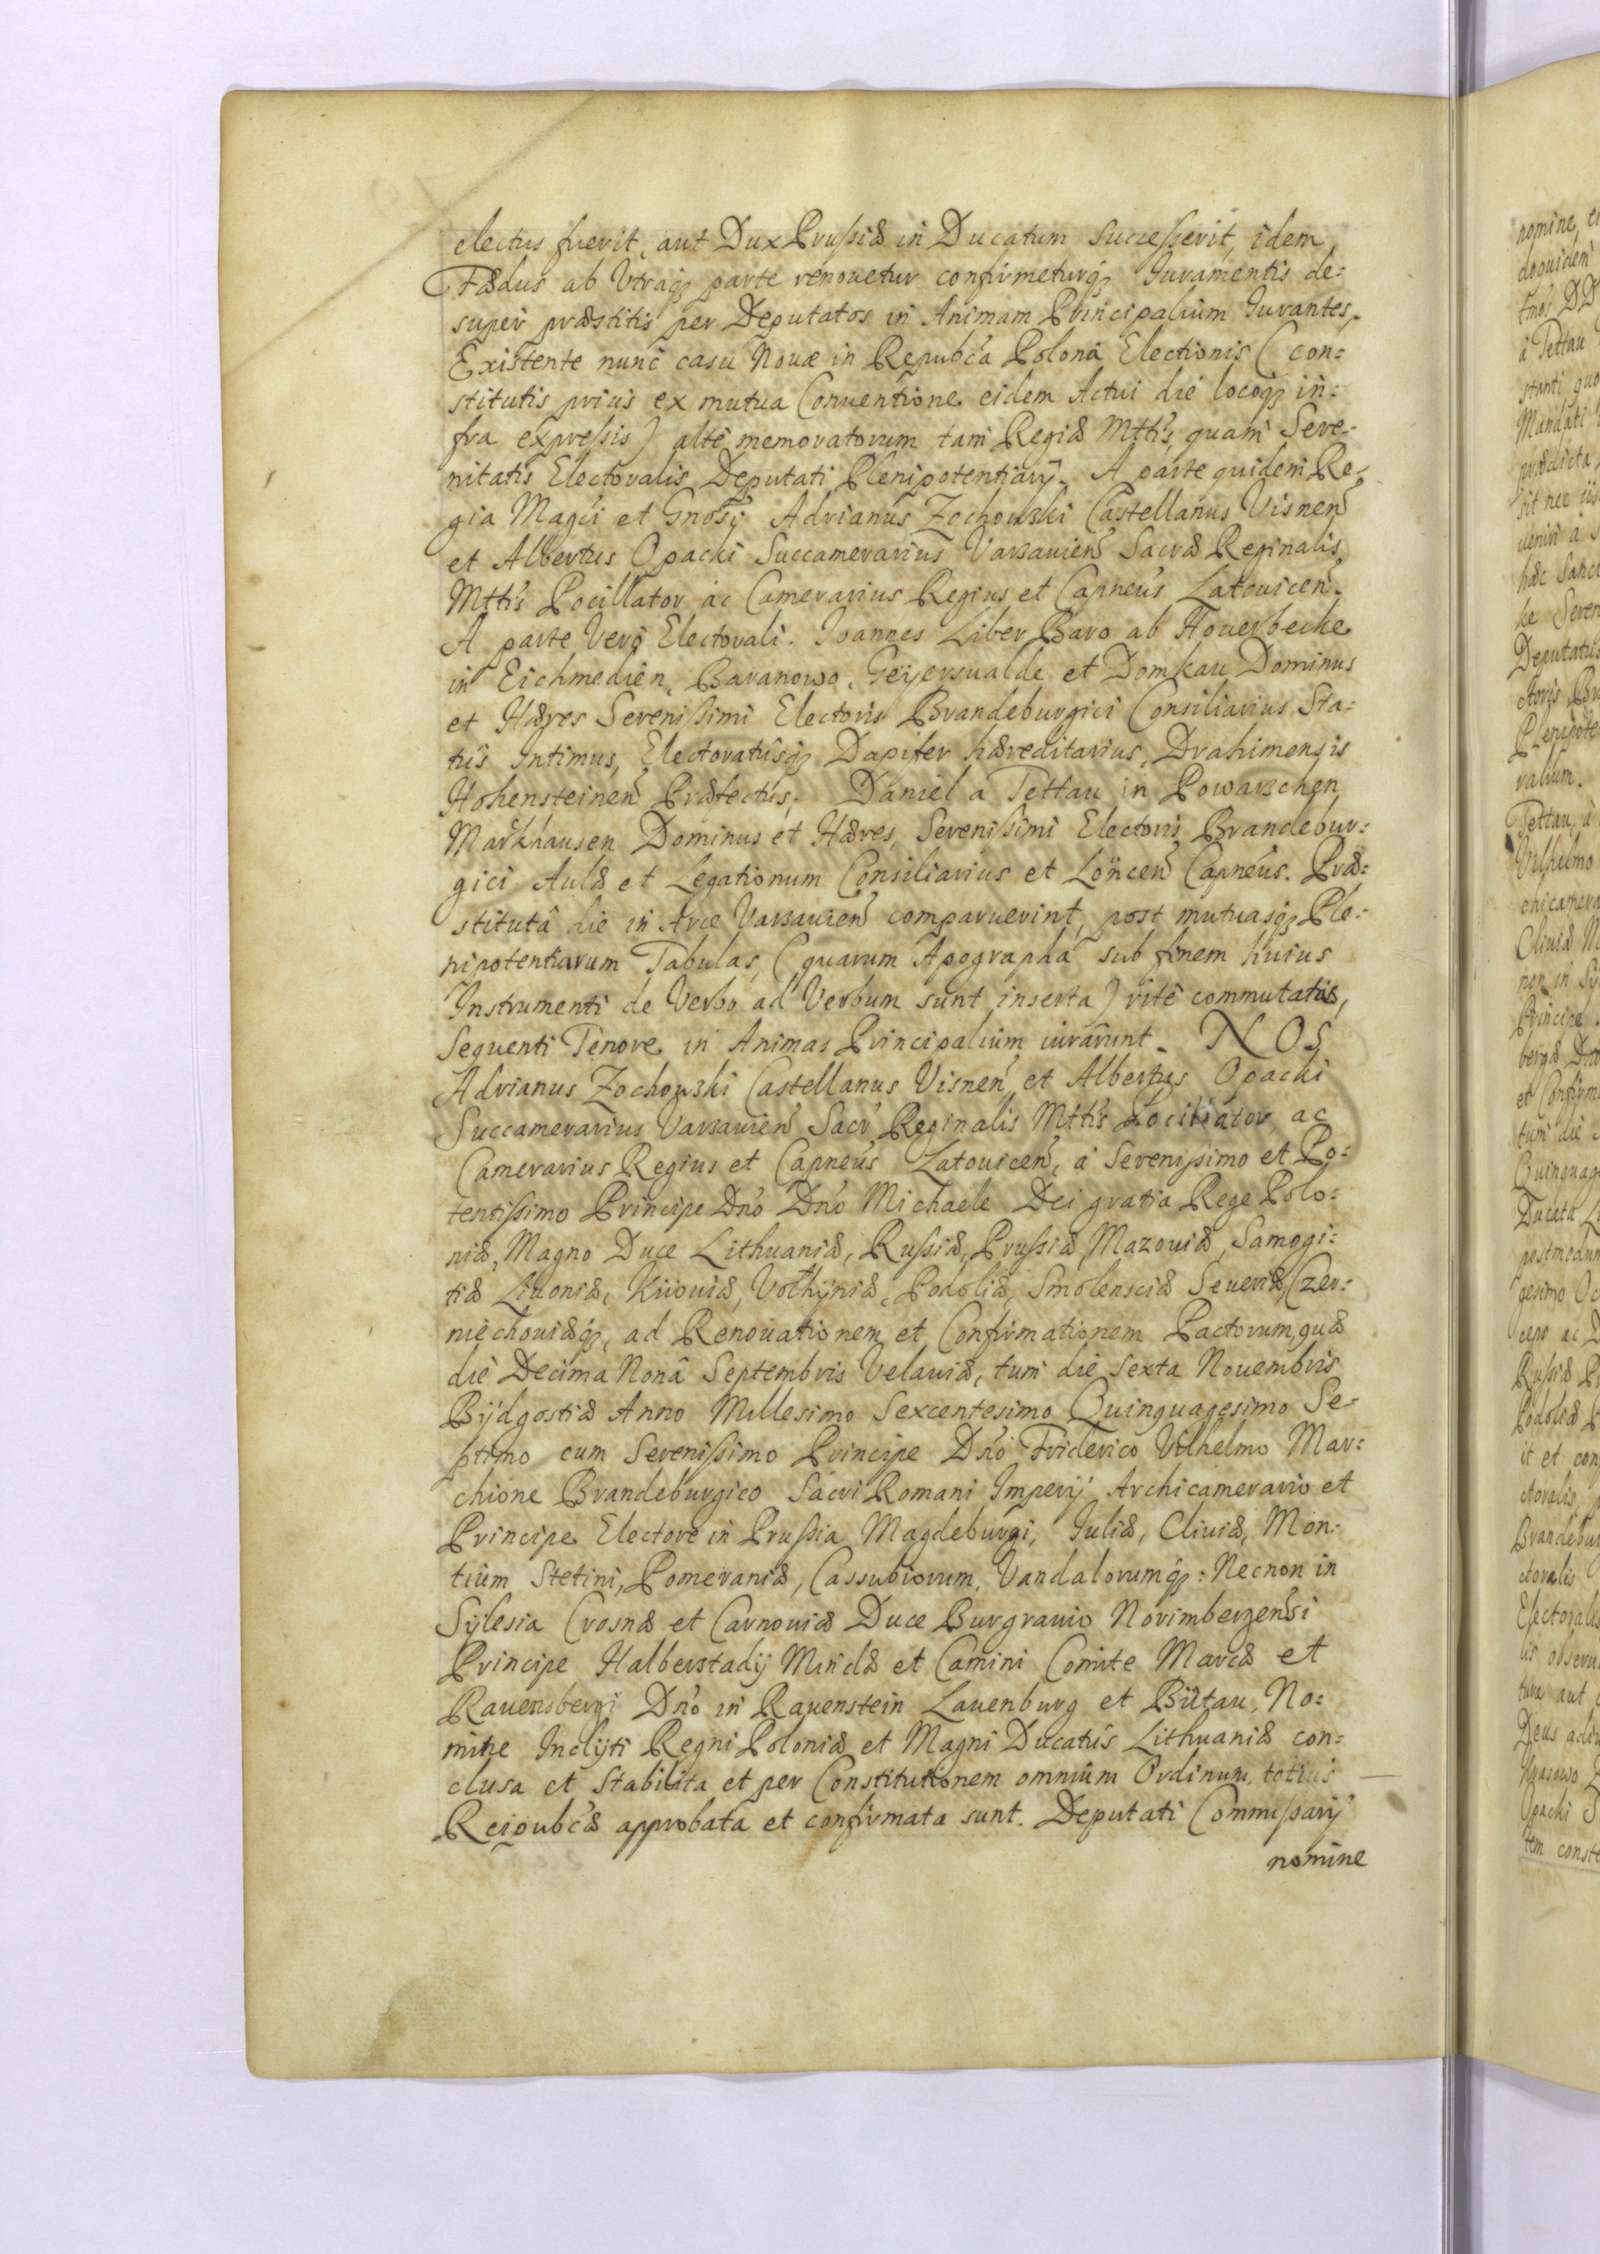 electus fuerit, aut Dux Prussiæ in Ducatum Successerit, idem
Fædus ab Vtraq₃ parte renouetur confirmeturq₃ Iuramentis de:
super præstitis per Deputatos in Animam Principalium Iurantes.
Existente nunc casu Nouæ in Repubcâ Polonâ Electionis (con:
stitutis prius ex mutua Conuentione eidem Actui die locoq₃ in:
fra expressis) altè memoratorum tam Regiæ Mttis, quam Sere:
nitatis Electoralis Deputati Plenipotentiarÿ. A parte quidem Re:
gia Magci et Gnosÿ Adrianus Zochowski Castellanus Visnen
et Albertus Opacki Succamerarius Varsauien Sacræ Reginalis
Mttis Pocillator ac Camerarius Regius et Capneus Latouicen.
A parte Verò Electorali. Ioannes Liber Baro ab Houerbecke
in Eichmedien, Baranowo, Geÿersualde et Domkau Dominus
et Hæres Serenissimi Electoris Brandeburgici Consiliarius Sta:
tûs Intimus, Electoratûsq₃ Dapifer hæreditarius, Drahimensis
Hohensteinen Præfectus. Daniel a Tettau in Powarschen
Markhausen Dominus et Hæres, Serenissimi Electoris Brandebur:
gici Aulæ et Legationum Consiliarius et Löncen Capneus. Præ:
stitutâ die in Arce Varsauien comparuerint, post mutuasq₃ Ple:
nipotentiarum Tabulas, (quarum Apographa sub finem huius
Instrumenti de Verbo ad Verbum sunt inserta) ritè commutatas,
Sequenti Tenore in Animas Principalium iurârunt. NOS
Adrianus Zochowski Castellanus Visnen et Albertus Opacki
Succamerarius Varsauien Sacr Reginalis Mttis Pocillator ac
Camerarius Regius et Capneus Latouicen, à Serenissimo et Po:
tentissimo Principe Dno Dno Michaele Dei gratia Rege Polo:
niæ, Magno Duce Lithuaniæ, Russiæ, Prussiæ Mazouiæ, Samogi:
tiæ Liuoniæ, Kiiouiæ, Volhÿniæ, Podoliæ, Smolensciæ Seueriæ, Czer:
niechouiæq₃, ad Renouationem et Confirmationem Pactorum, quæ
die Decima Nonâ Septembris Velauiæ, tum die Sexta Nouembris
Bÿdgostiæ Anno Millesimo Sexcentesimo Quinquagesimo Se:
ptimo cum Serenissimo Principe Dno Friderico Vilhelmo Mar:
chione Brandeburgico Sacri Romani Imperÿ Archicamerario et
Principe Electore in Prussia Magdeburgi, Iuliæ, Cliuiæ, Mon:
tium Stetini, Pomeraniæ, Cassubiorum, Vandalorumq₃: Necnon in
Sÿlesia Crosnæ et Carnouiæ Duce Burgrauio Norimbergensi
Principe Halberstadÿ Mindæ et Camini Comite Marcæ et
Rauensbergi Dno in Rauenstein Lauenburg et Bütau, No:
mine Inclÿti Regni Poloniæ et Magni Ducatûs Lithuaniæ con:
clusa et Stabilita et per Constitutionem omnium Ordinum totius
Reipubcæ approbata et confirmata sunt. Deputati Commissarÿ
nomine